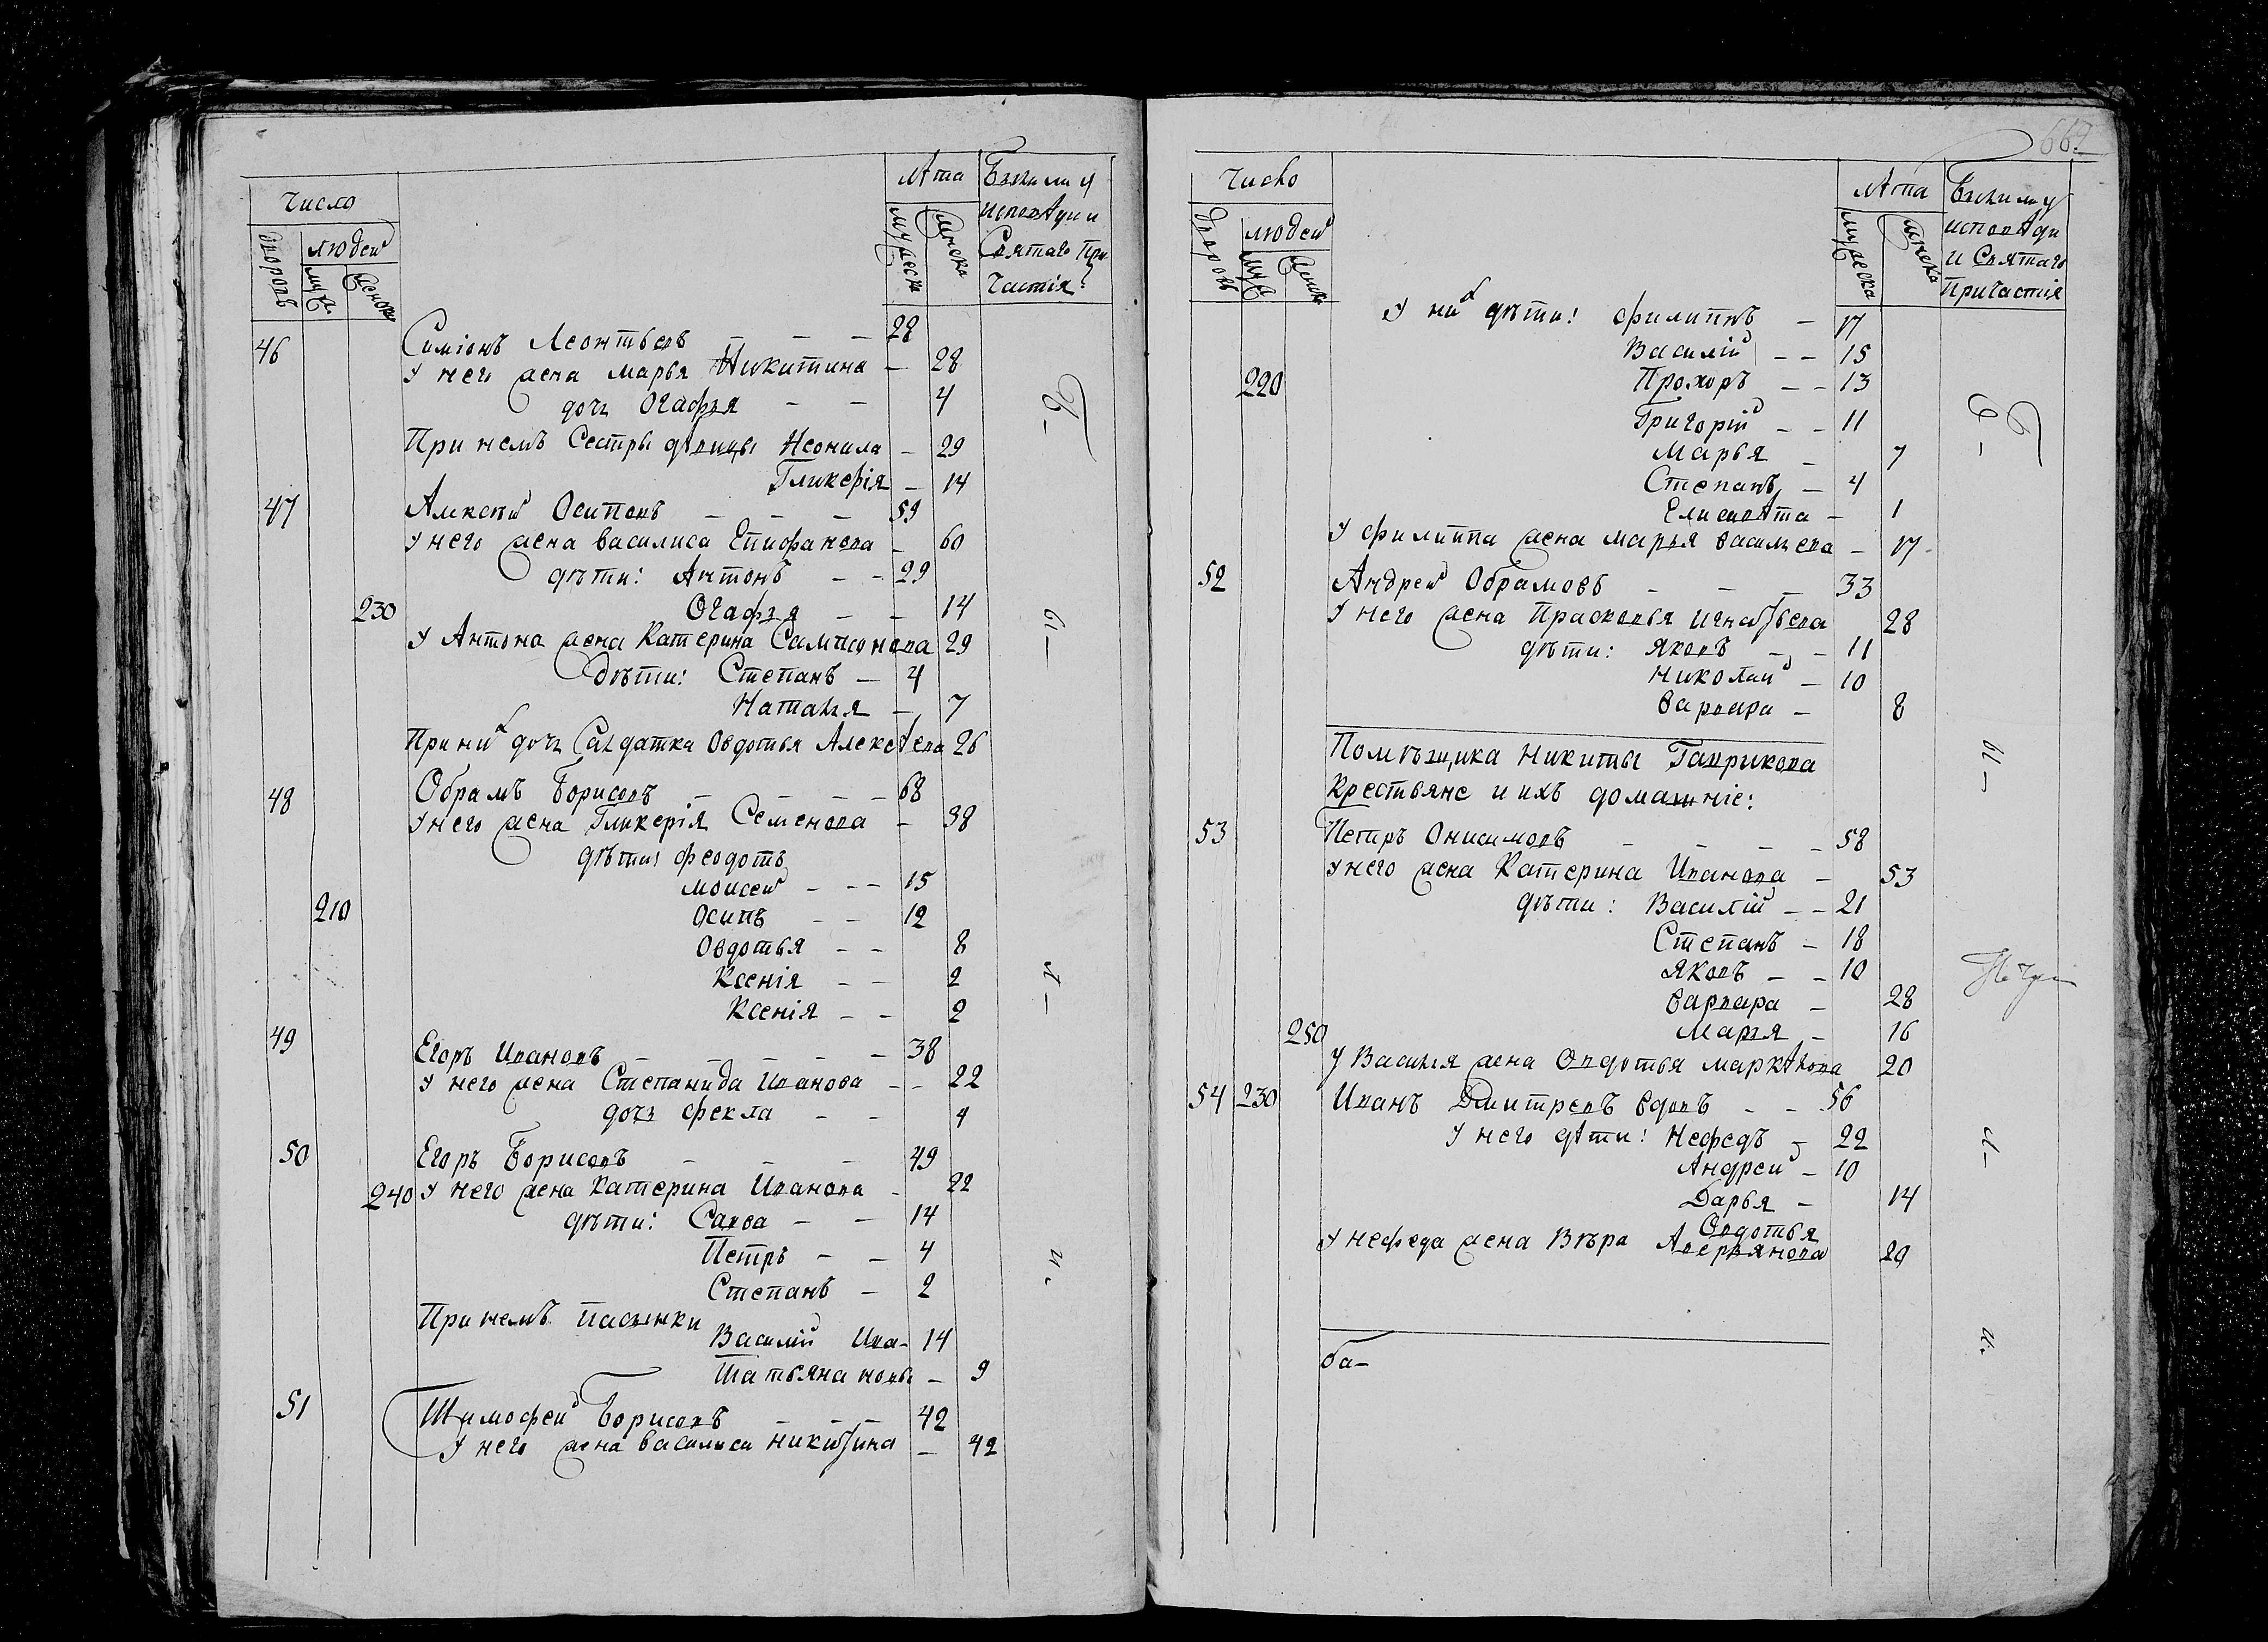 Число
Лѣта
Были ли у
исповѣди и
Святаго При
частія?
дворовъ
людей
муж.
женск.
мужеска
женска
46 Симіонъ Леонтьевъ – – – 28
У него жена Марья Никитина – 28
дочь Огафья – – 4
При немъ Сестры дѣвицы Неонила – 29
Гликерія – 14
47 Алексѣй Осиповъ – – – 59
У него жена Василиса Епифанова – 60
дѣти: Антонъ – – 29
230 Огафья – – 14
У Антона жена Катерина Сампсонова 29
Дѣти: Степанъ – 4
Наталья – 7
При них дочь Салдатка Овдотья Алексѣева 26
48 Обрамъ Борисовъ – – – – 68
У него жена Гликерія Семенова – 38
дѣти: Феодотъ
Моисей – – – 15
210 Осипъ – – 12
Овдотья – – 8
Ксенія – – 2
Ксенія – – 2
49 Егоръ Ивановъ – – – – – 38
У него жена Степанида Иванова – – 22
дочь Фекла – – 4
50 Егоръ Борисовъ – – – 49
240 У него жена Катерина Иванова – 22
дѣти: Савва – – 14
Петръ – – 4
Степанъ – 2
При немъ пасынки
Василій Ива- 14
Татьяна новы – 9
51 Тимофей Борисовъ – – – 42
У него жена Василиса Никитина – 42
Б –
ы –
л –
и.
667
Число
Лѣта
Были ли у
исповѣди
и Святаго
Причастія
дворовъ
людей
муж
женск
мужеска
женска
У них дѣти: Филиппъ – 17
Василій – – 15
220 Прохоръ – – 13
Григорій – – 11
Марья – 7
Степанъ – 4
Елисавѣта – 1
У Филиппа жена Марья Васильева – 17
52 Андрей Обрамовъ – – – 33
У него жена Прасковья Игнатьева 28
дѣти: Яковъ – – 11
Николай – 10
Варвара – 8
Помѣщика Никиты Гаврикова
Крестьяне и ихъ домашніе:
53 Петръ Онисимовъ – – – – 58
У него жена Катерина Иванова – 53
дѣти: Василій – – 21
Степанъ – 18
Яковъ – – 10
Варвара – 28
250 Марья – 16
У Василья жена Овдотья Маркѣлова 20
54 230 Иванъ Дмитревъ вдовъ – – 56
У него дѣти: Нефедъ – 22
Андрей – 10
Дарья – 14
Овдотья
У Нефеда жена Вѣра Аверьянова 20
ба–
Б –
ы –
л –
и.